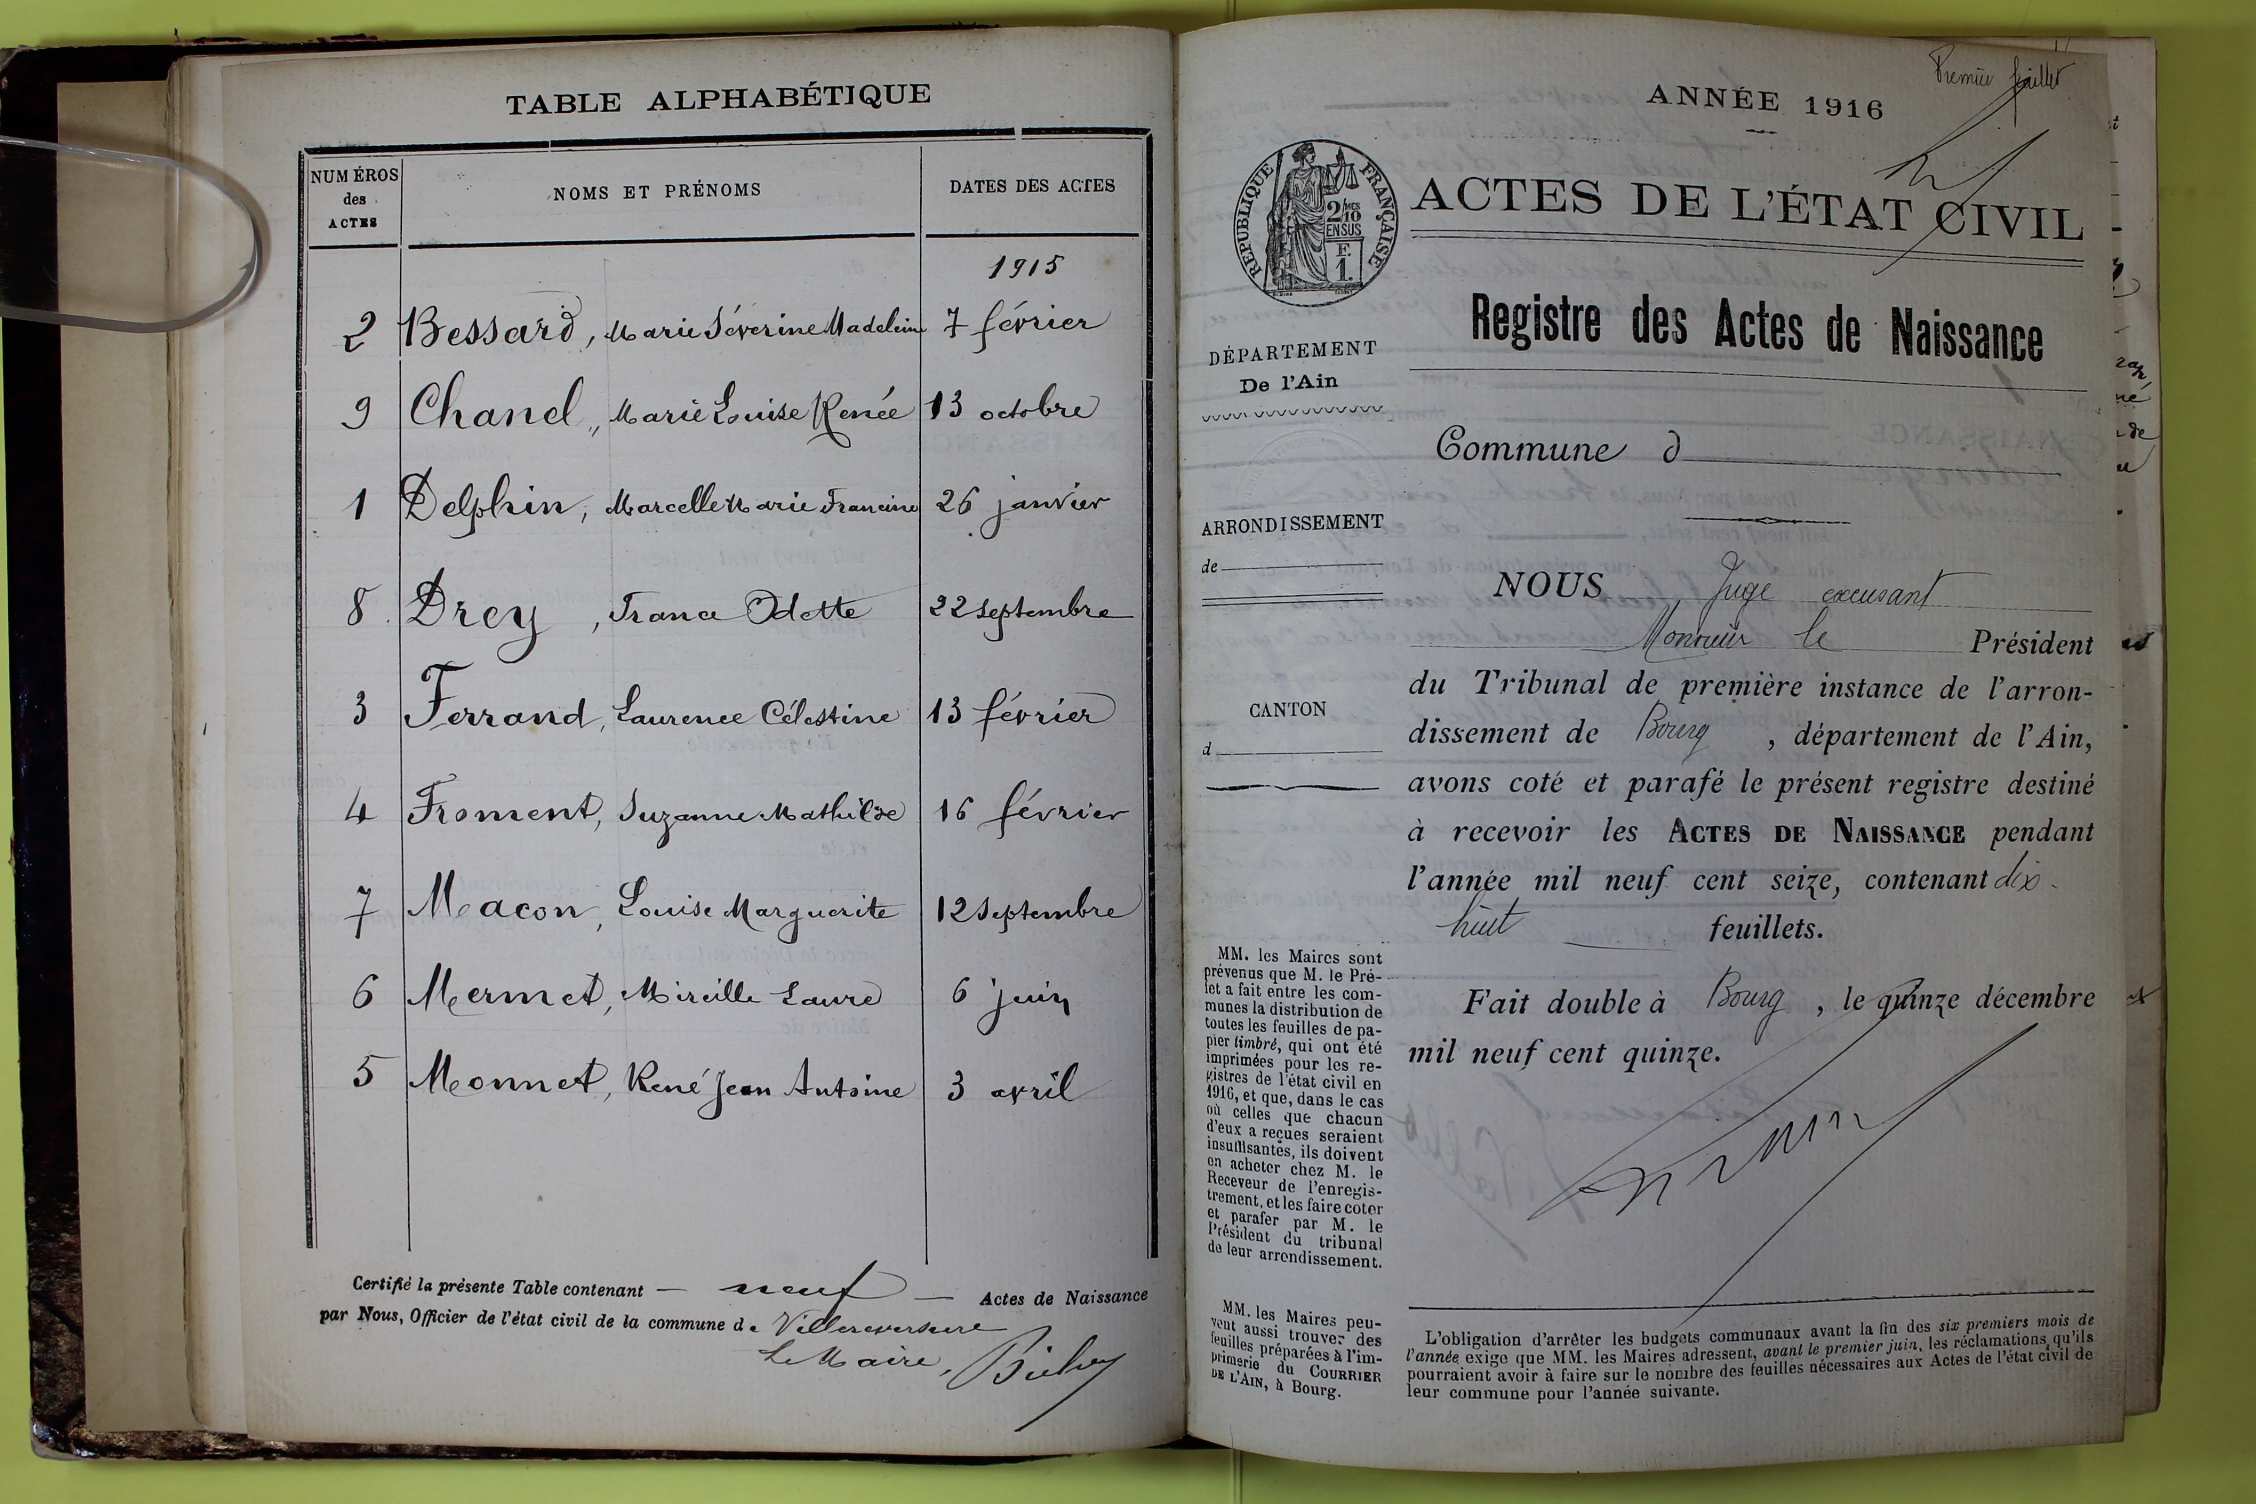 TABLE ALPHABÉTIQUE
NUMÉROS
des
ACTES
NOMS ET PRÉNOMS
DATES DES ACTES
1915
2 Bessard, Marie Séverine Madelein 7 février
9 Chanel, Marie Louise Renée 13 octobre
1 Delphin, Marcelle Marie Francine 26 janvier
8 Drey, France Odette 22 septembre
3 Ferrand, Laurence Célestine 13 février
4 Froment, Suzanne Mathilde 16 février
7 Macon, Louise Marguerite 12 septembre
6 Mermet, Mireille Laure 6 juin
5 Monnet, René Jean Antoine 3 avril
Certifié la présente Table contenant — neuf — Actes de Naissance
par Nous, Officier de l'état civil de la commune de Villereversure
Le Maire,
Premier feuillet
ANNÉE 1916
RÉPUBLIQUE FRANÇAISE
2/10
EN SUS
F.
1.
ACTES DE L'ÉTAT CIVIL
Registre des Actes de Naissance
DÉPARTEMENT
De l'Ain
Commune d
ARRONDISSEMENT
de
CANTON
d
NOUS Juge excusant
Monsieur le Président
du Tribunal de première instance de l'arron-
dissement de Bourg, département de l'Ain,
avons coté et parafé le présent registre destiné
à recevoir les ACTES DE NAISSANCE pendant
l'année mil neuf cent seize, contenant dix-
huit feuillets.
Fait double à Bourg, le quinze décembre
mil neuf cent quinze.
MM. les Maires sont
prévenus que M. le Pré-
fet a fait entre les com-
munes la distribution de
toutes les feuilles de pa-
pier timbré, qui ont été
imprimées pour les re-
gistres de l'état civil en
1916, et que, dans le cas
où celles que chacun
d'eux a reçues seraient
insuffisantes, ils doivent
en acheter chez M. le
Receveur de l'enregis-
trement, et les faire coter
et parafer par M. le
Président du tribunal
de leur arrondissement.
MM. les Maires peu-
vent aussi trouver des
feuilles préparées à l'im-
primerie du COURRIER
DE L'AIN, à Bourg.
L'obligation d'arrêter les budgets communaux avant la fin des six premiers mois de
l'année exige que MM. les Maires adressent, avant le premier juin, les réclamations qu'ils
pourraient avoir à faire sur le nombre des feuilles nécessaires aux Actes de l'état civil de
leur commune pour l'année suivante.